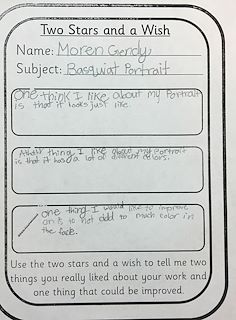 Two Stars and a Wish
Name: Moren Gendy
Subject: Basquiat Portrait
One think I like about my Portrait
is that it looks just like.
Another thing I like about my Portrait
is that it has a lot of different colors.
one thing I would like to improve
on is to not add to much color in
the face.
Use the two stars and a wish to tell me two
things you really liked about your work and
one thing that could be improved.